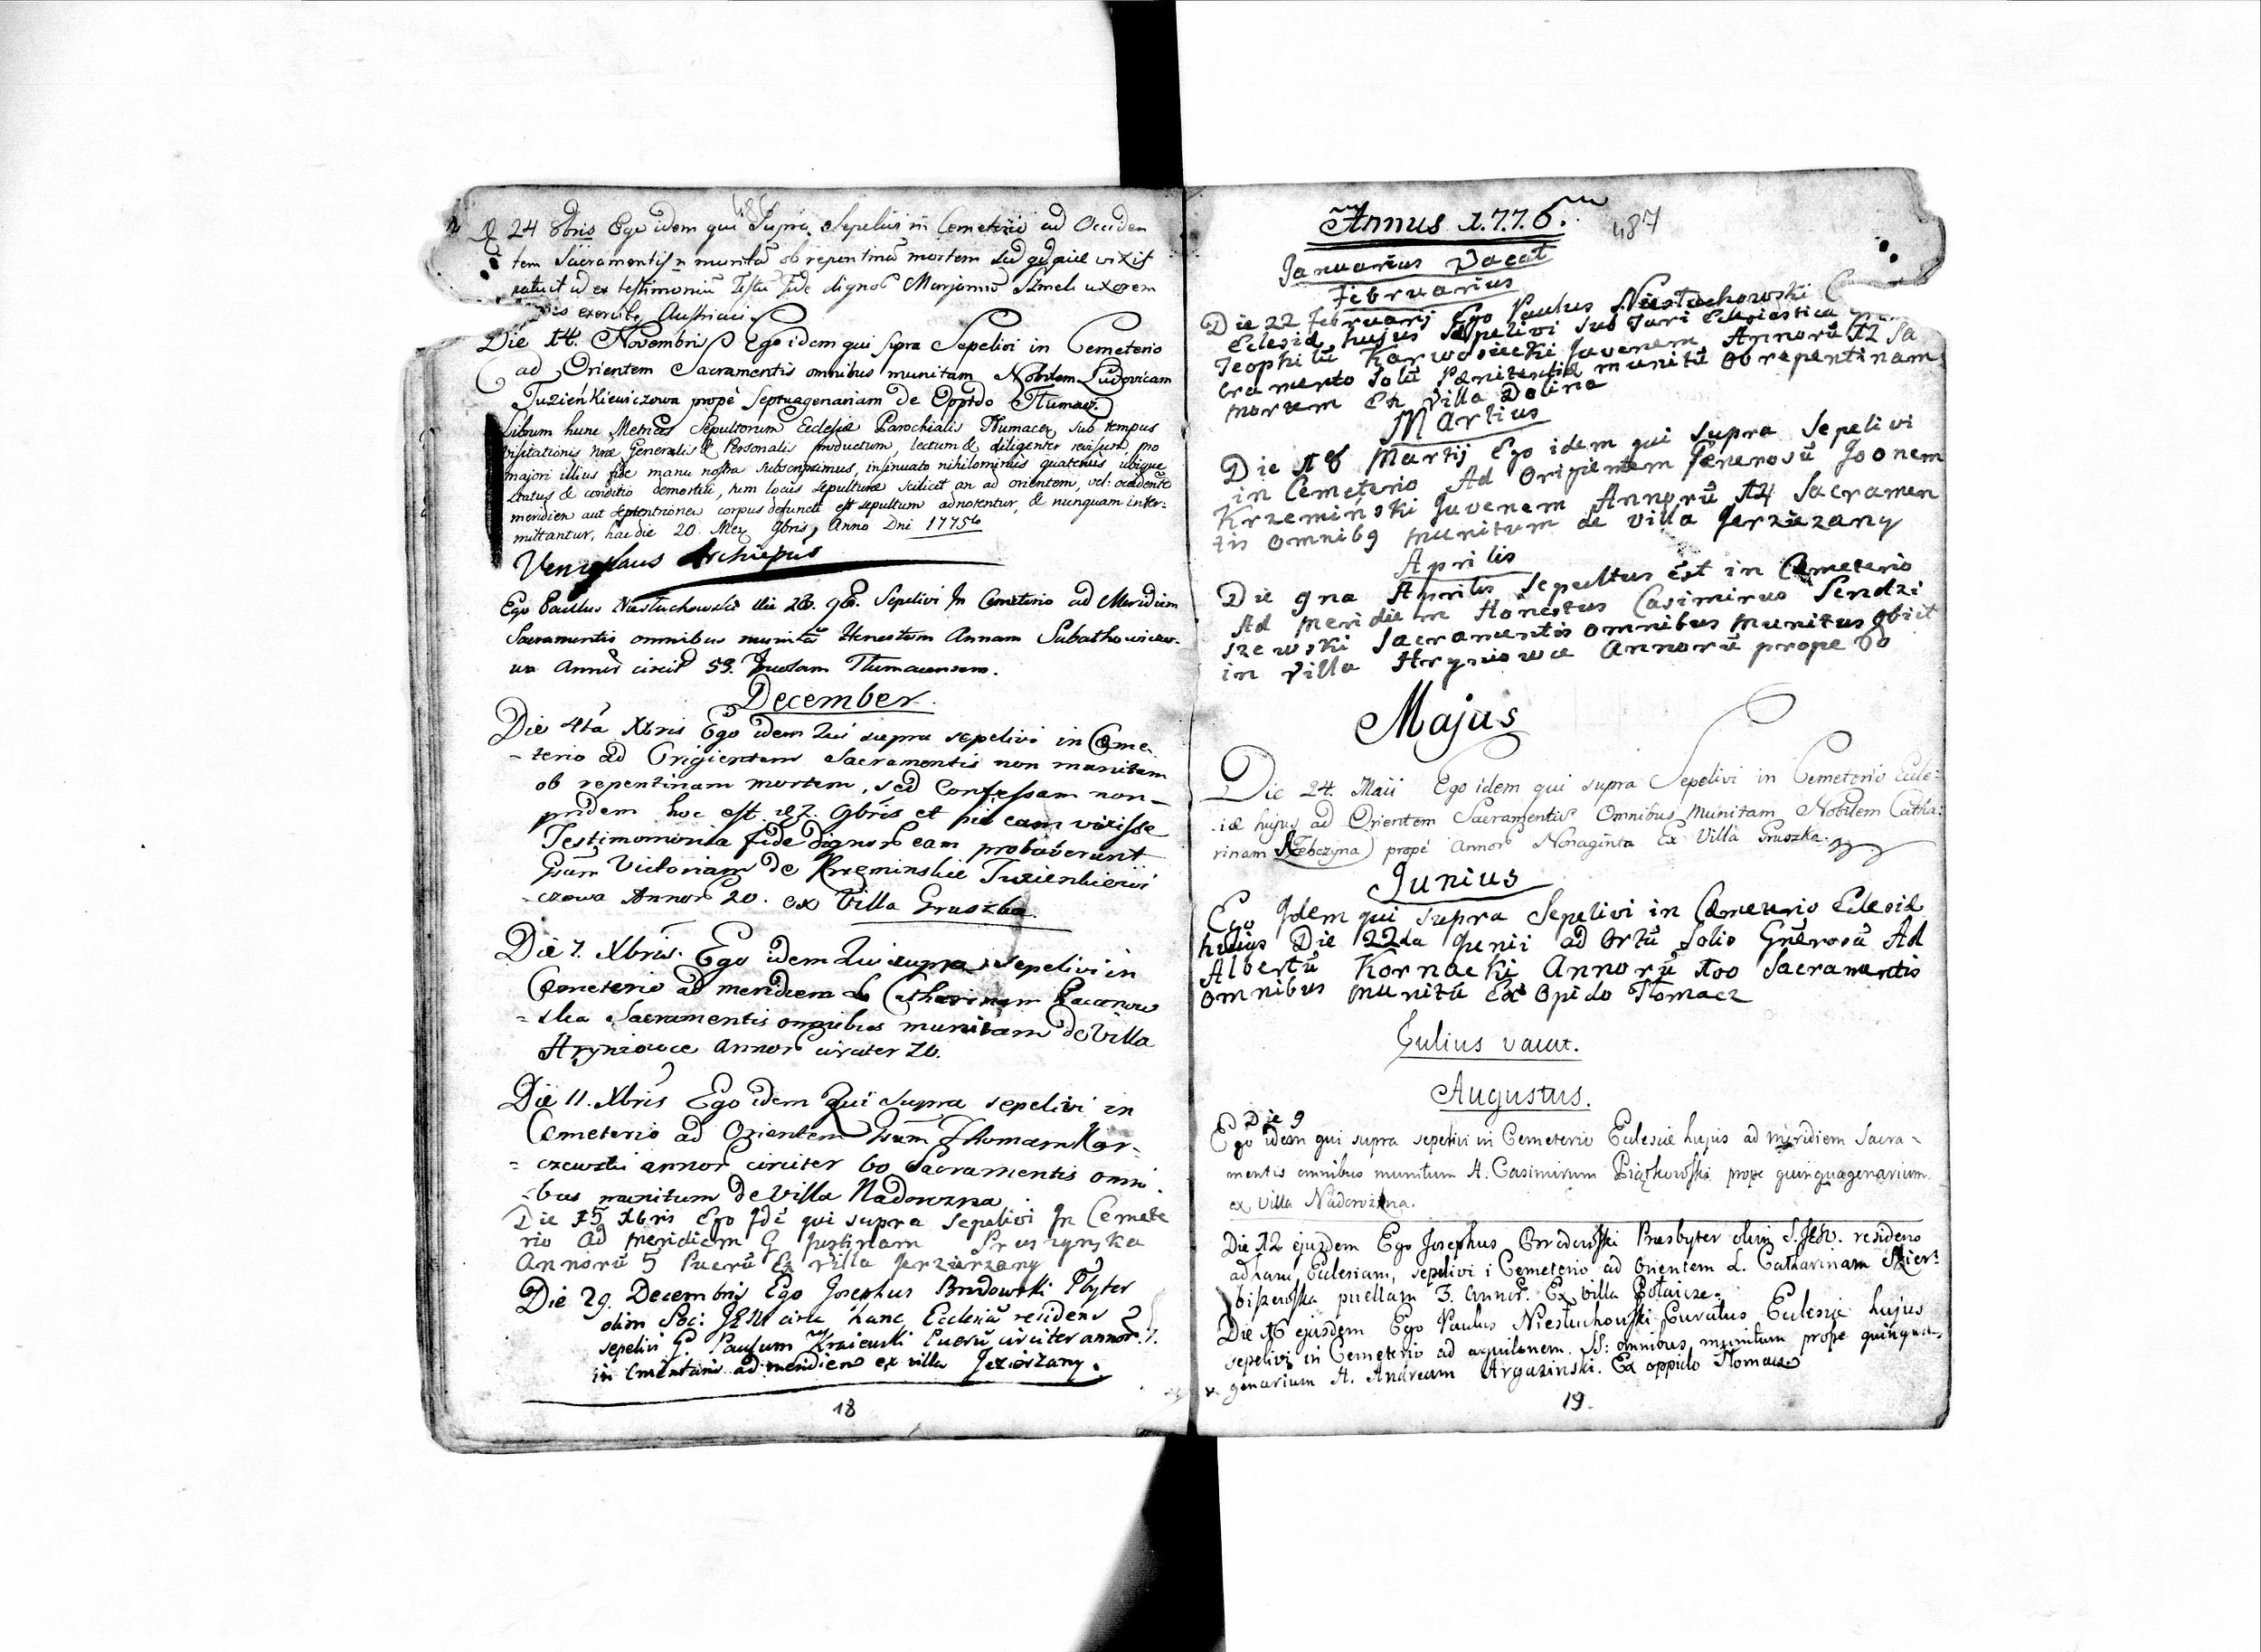 24 8bris Ego idem qui Supra Sepelivi in Cemeterio ad Occiden
tem Sacramentis munitã ob repentinã mortem sed qd pie vixit
patuit id ex testimoniũ Fide dignor Marjannã uxorem
exercitg Austriaci
Die 14. Novembris Ego idem qui supra Sepelivi in Cemeterio
ad Orientem Sacramentis omnibus munitam Nobilem Ludovicam
Tuzieńkiewiczowa propè Septuagenariam de Oppido Tłumacz
Librum hunc Metrices Sepultorum Ecclesiæ Parochialis Tłumacen sub tempus
visitationis nræ Generalis & Personalis productum, lectum & diligenter revisum, pro
majori illius fide manu nostra subscripsimus, insinuato nihilominus quatenus, ubique
status & conditio demortui, tum locus sepulturæ scilicet an ad orientem, vel: occidente
meridien aut septentrionem corpus defuncti est sepultum adnotentur, & nunquam inter-
mittantur, hac die 20. Mez 9bris, Anno Dni 1775to
Venceslaus Archiepus
Ego Paulus Niestuchowski die 28. 9b. Sepelivi In Cemeterio ad Meridiem
Sacramentis omnibus munitã Honestam Annam Subathowiczo-
wa annor circit 53. Incolam Tłumacensem.
December
Die 4ta Xbris Ego idem Qui supra sepelivi in Cæme
-terio ad Origientem Sacramentis non munitam
ob repentinam mortem, sed confessam non-
pridem hoc est 9bris et pie eam vixisse
Testimoninia fide dignor eam probaverunt
Gsam Victoriam de Krzeminskie Tuzienkiewi
-czowa Annor 20. ex Villa Gruszka.
Die 7. Xbris. Ego idem Qui supra sepelivi in
Cæmeterio ad meridiem L Catharinam Kaczanow
-ska Sacramentis omnibus munitam de Villa
Hryniowce annor circiter 70.
Die 11. Xbris Ego idem Qui supra sepelivi in
Cæmeterio ad Orientem Gsum Thomam Kor-
-czewski annor circiter 60 Sacramentis omni
-bus munitum de Villa Nadorozna
Die 15 Xbris Ego Idẽ qui supra Sepelivi In Cemete
rio Ad Meridiem G Justinam Pruszynska
Annorũ 5 Puerũ Ex villa Jerzierzany
Die 29. Decembris Ego Josephus Brodowski Pbyter
olim Soc: JESU circa hanc Ecclesiã residens
sepelivi G. Paulum Kraiewski Puerũ circiter annor. 7.
in Cmentario ad meridiem ex villa Jezierzany.
18
Annus 1776.
487
Januarius Vacat
Februarius
Die 22 Februarij Ego Paulus Niestuchowski
Eclesiæ hujus Sepelivi sub Turi Eclesiastica
Teophilũ Karwosiecki Juvenem Annorũ 12 Sa
cramento Solũ Pœnitentiæ munitũ ob repentinam
mortem Ex Villa Dolina
Martius
Die 18 Martij Ego idem qui supra Sepelivi
in Cemeterio Ad Origientem Generosũ Joonem
Krzemiński Juvenem Annorũ 14 Sacramen
tis omnib9 munitum de villa Jerzierzany
Aprilis
Die 9na Aprilis Sepeultus Est in Cæmeterio
Ad meridiem Honestus Casimirus Sendzi
szewski Sacramentis omnibus munitus obiit
in villa Hryniowce Annorũ prope 80
Majus
Die 24. Maii Ego idem qui supra Sepelivi in Cemeterio Eccle:
:iæ hujus ad Orientem Sacramentis Omnibus munitam Nobilem Catha:
rinam propè annor Nonaginta Ex Villa Gruszka.
Junius
Ego Idem qui supra Sepelivi in Cæmeterio Eclesiæ
hujus Die 22da Junii ad Ortũ Solis Gnerosũ Ad
Albertũ Kornacki Annorũ 100 Sacramentis
omnibus munitũ Ex Opido Tłomacz
Julius vacat.
Augustus.
Die 9
Ego idem qui supra sepelivi in Cemeterio Eclesiæ hujus ad meridiem Sacra-
mentis omnibus munitum H. Casimirum Piątkowski prope quinquagenarium
ex Villa Nadorożna.
Die 12 ejusdem Ego Josephus Brodowski Præsbyter olim S.JESU. residens
ad hanc Eclesiam, sepelivi i Cemeterio ad Orientem L. Catharinam Skier:
biszewska puellam 3. annor. Ex villa
Die 16 ejusdem Ego Paulus Niestuchowski Curatus Eclesiæ hujus
sepelivi in Cemeterio ad aquilonem. SS: omnibus munitum prope quinqua-
genarium H. Andream Argasinski. Ex oppido Tłomacz
19.